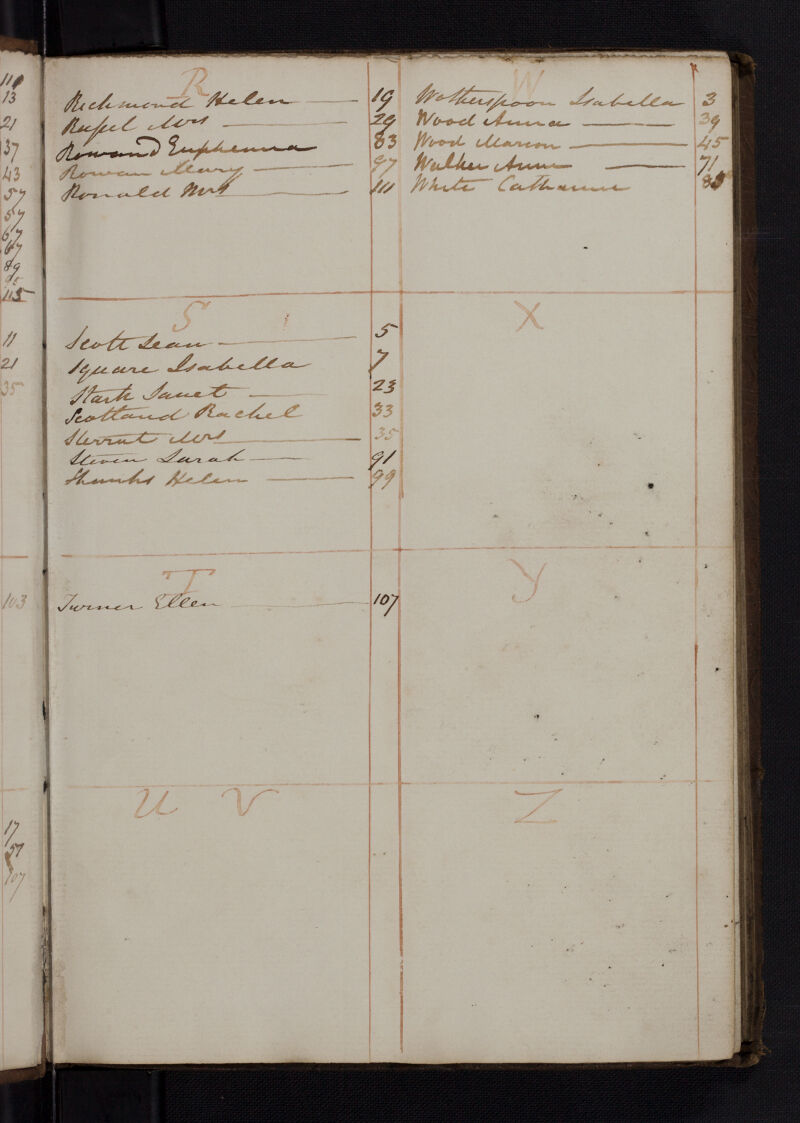 110
13
21
37
43
57
57
67
67
89
95
115
11
21
35
103
17
57
107
R
Richmond Helen 19
Russel Mrs 29
Rowand Euphemia 83
Rowan Mary 97
Ronald Mrs 111
S
Scott Jean 5
Square Isabella 7
Stark Janet 23
Scotland Rachel 33
Sterrat Mrs 35
Steven Sarah 91
Shanks Helen 99
T
Turner Ellen 107
U V
W
Wotherspoon Isabella 3
Wood Anna 39
Wood Marion 45
Walker Anne 71
White Catharine 85
X
Y
Z